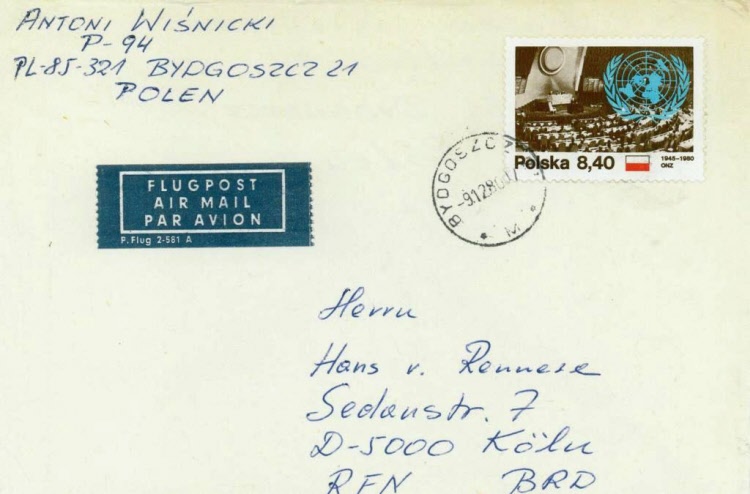 ANTONI WIŚNICKI
P-94
PL-85-321 BYDGOSZCZ 21
POLEN
Polska 8,40
1945-1980
ONZ
BYDGOSZCZ
-9.12.80
M
FLUGPOST
AIR MAIL
PAR AVION
P. Flug 2-561 A
Herrn
Hans v. Rennese
Sedanstr. 7
D-5000 Köln
RFN BRD